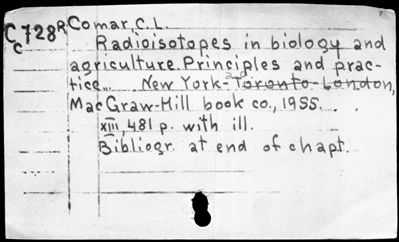 Cc728R Comar, C.L.
Radioisotopes in biology and
agriculture. Principles and prac-
tice... New York-Toronto-London,
MacGraw-Hill book co., 1955.
xiii, 481 p. with ill.
Bibliogr. at end of chapt.